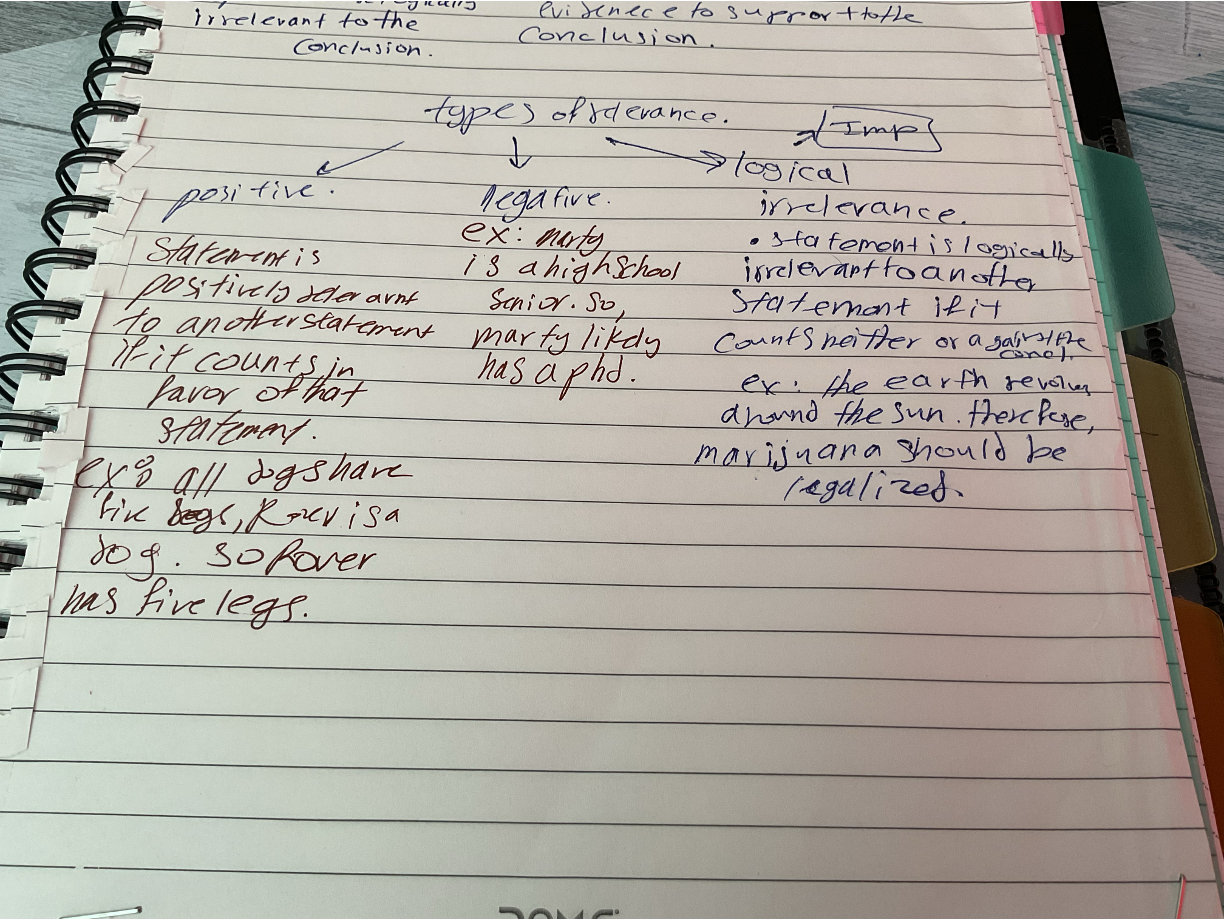 irrelevant to the
conclusion.
evidenece to support to the
conclusion.
types of relevance.
Imp
positive.
statement is
positively relevant
to another statement
if it counts in
favor of that
statement.
ex: all dogs have
five legs, Rover is a
dog. so Rover
has five legs.
negative.
ex: marty
is a high school
senior. so,
marty likely
has a phd.
logical
irrelevance.
• statement is logically
irrelevant to another
statement if it
counts neither or against the
concl.
ex: the earth revolves
around the sun. therefore,
marijuana should be
legalized.